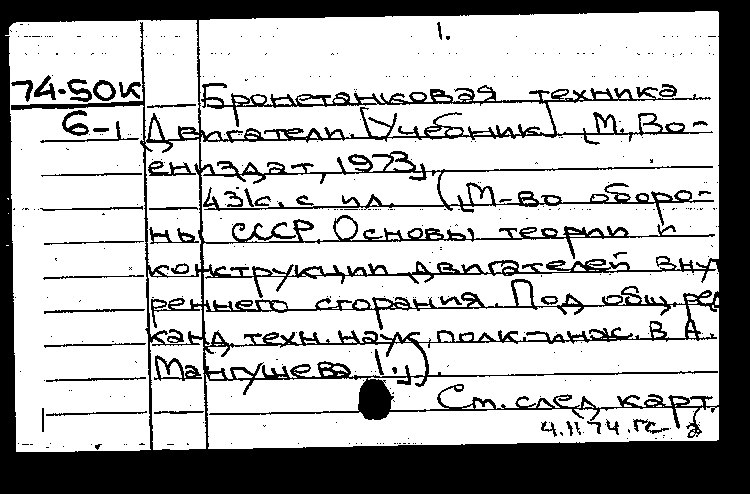 1.
74-50к Бронетанковая техника.
6-1 Двигатели. [Учебник] М., Во-
ениздат, 1973,
431с. с ил. (М-во оборо-
ны СССР. Основы теории и
конструкции двигателей внут
реннего сгорания. Под общ. ред
канд. техн. наук, полк.-инж. В. А.
Мангушева. 1.)
См. след. карт.
4.II 74.